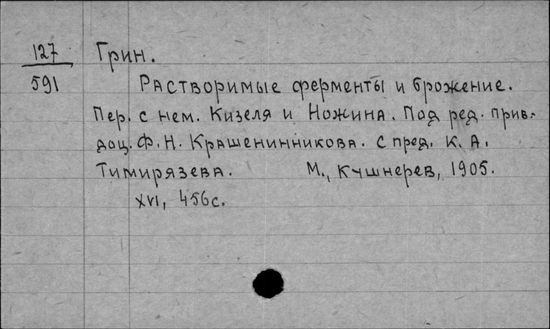 127 Грин.
591 Растворимые ферменты и брожение.
Пер. с нем. Кизеля и Ножина. Под ред. прив.-
доц. Ф. Н. Крашенинникова. С пред. К. А.
Тимирязева. М., Кушнерев, 1905.
XVI, 456с.